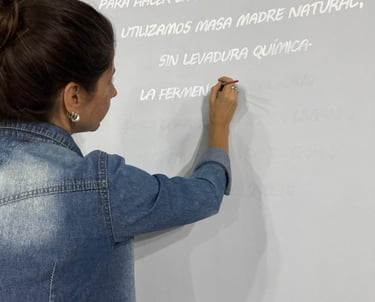 PARA HACER
UTILIZAMOS MASA MADRE NATURAL,
SIN LEVADURA QUÍMICA.
LA FERMEN